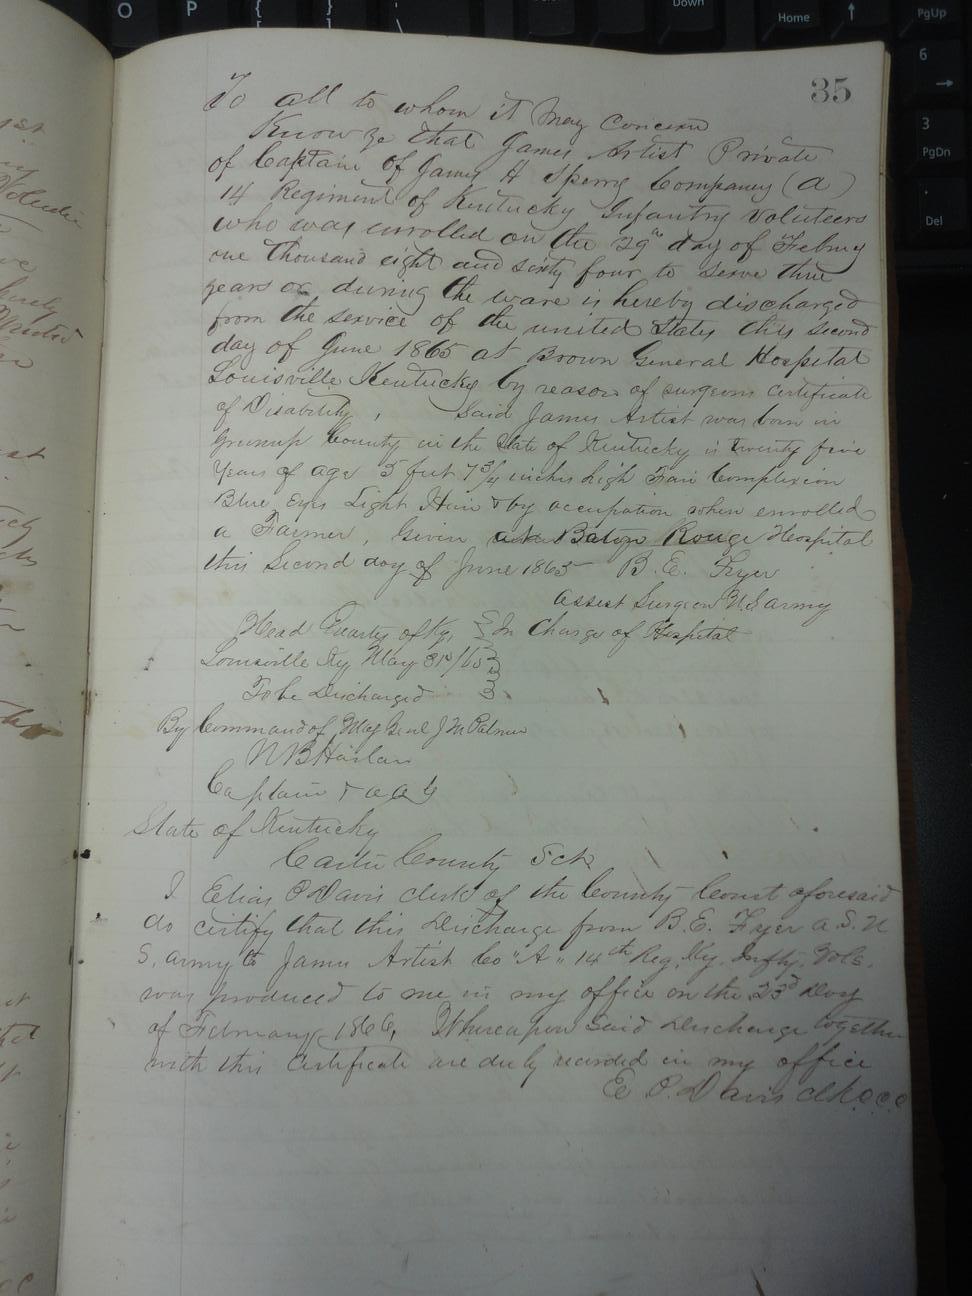 O P { [ } ] \ Del Down Home ↑ PgUp
6 →
3 PgDn
. Del
35
To all to whom it May Concern
Know Ye that James Artist Private
of Captain of James H Sperry Company (a)
14 Regiment of Kentucky Infantry Voluteers
who was enrolled on the 29th day of Febury
one thousand eight and sixty four to serve three
years or during the ware is hereby discharged
from the service of the united States this second
day of June 1865 at Brown General Hospital
Louisville Kentucky by reason of surgeons Certificate
of Disability, Said James Artist was born in
Greenup County in the State of Kentucky is twenty five
Years of age 5 feet 7 3/4 inches high Fair Complexion
Blue Eyes Light Hair & by occupation when enrolled
a Farmer, Given at Baton Rouge Hospital
this Second day of June 1865 B. E. Fryer
assist Surgeon U S army
Head Quarters of Ky, In Charge of Hospital
Louisville Ky May 31st/65
To be Discharged
By Command of Maj Genl J M Palmer
Harlan
Captain & a a G
State of Kentucky
Carter County Sct
I Elias P Davis clerk of the County Court aforesaid
do certify that this Discharge from B. E. Fryer a. S. U
S. army to James Artist Co "A" 14th Reg. Ky. Infty. Vols.
was produced to me in my office on the 23d Day
of February 1866, Whereupon Said Discharge together
with this Certificate are duly recorded in my office
E P. Davis clk c. c. c